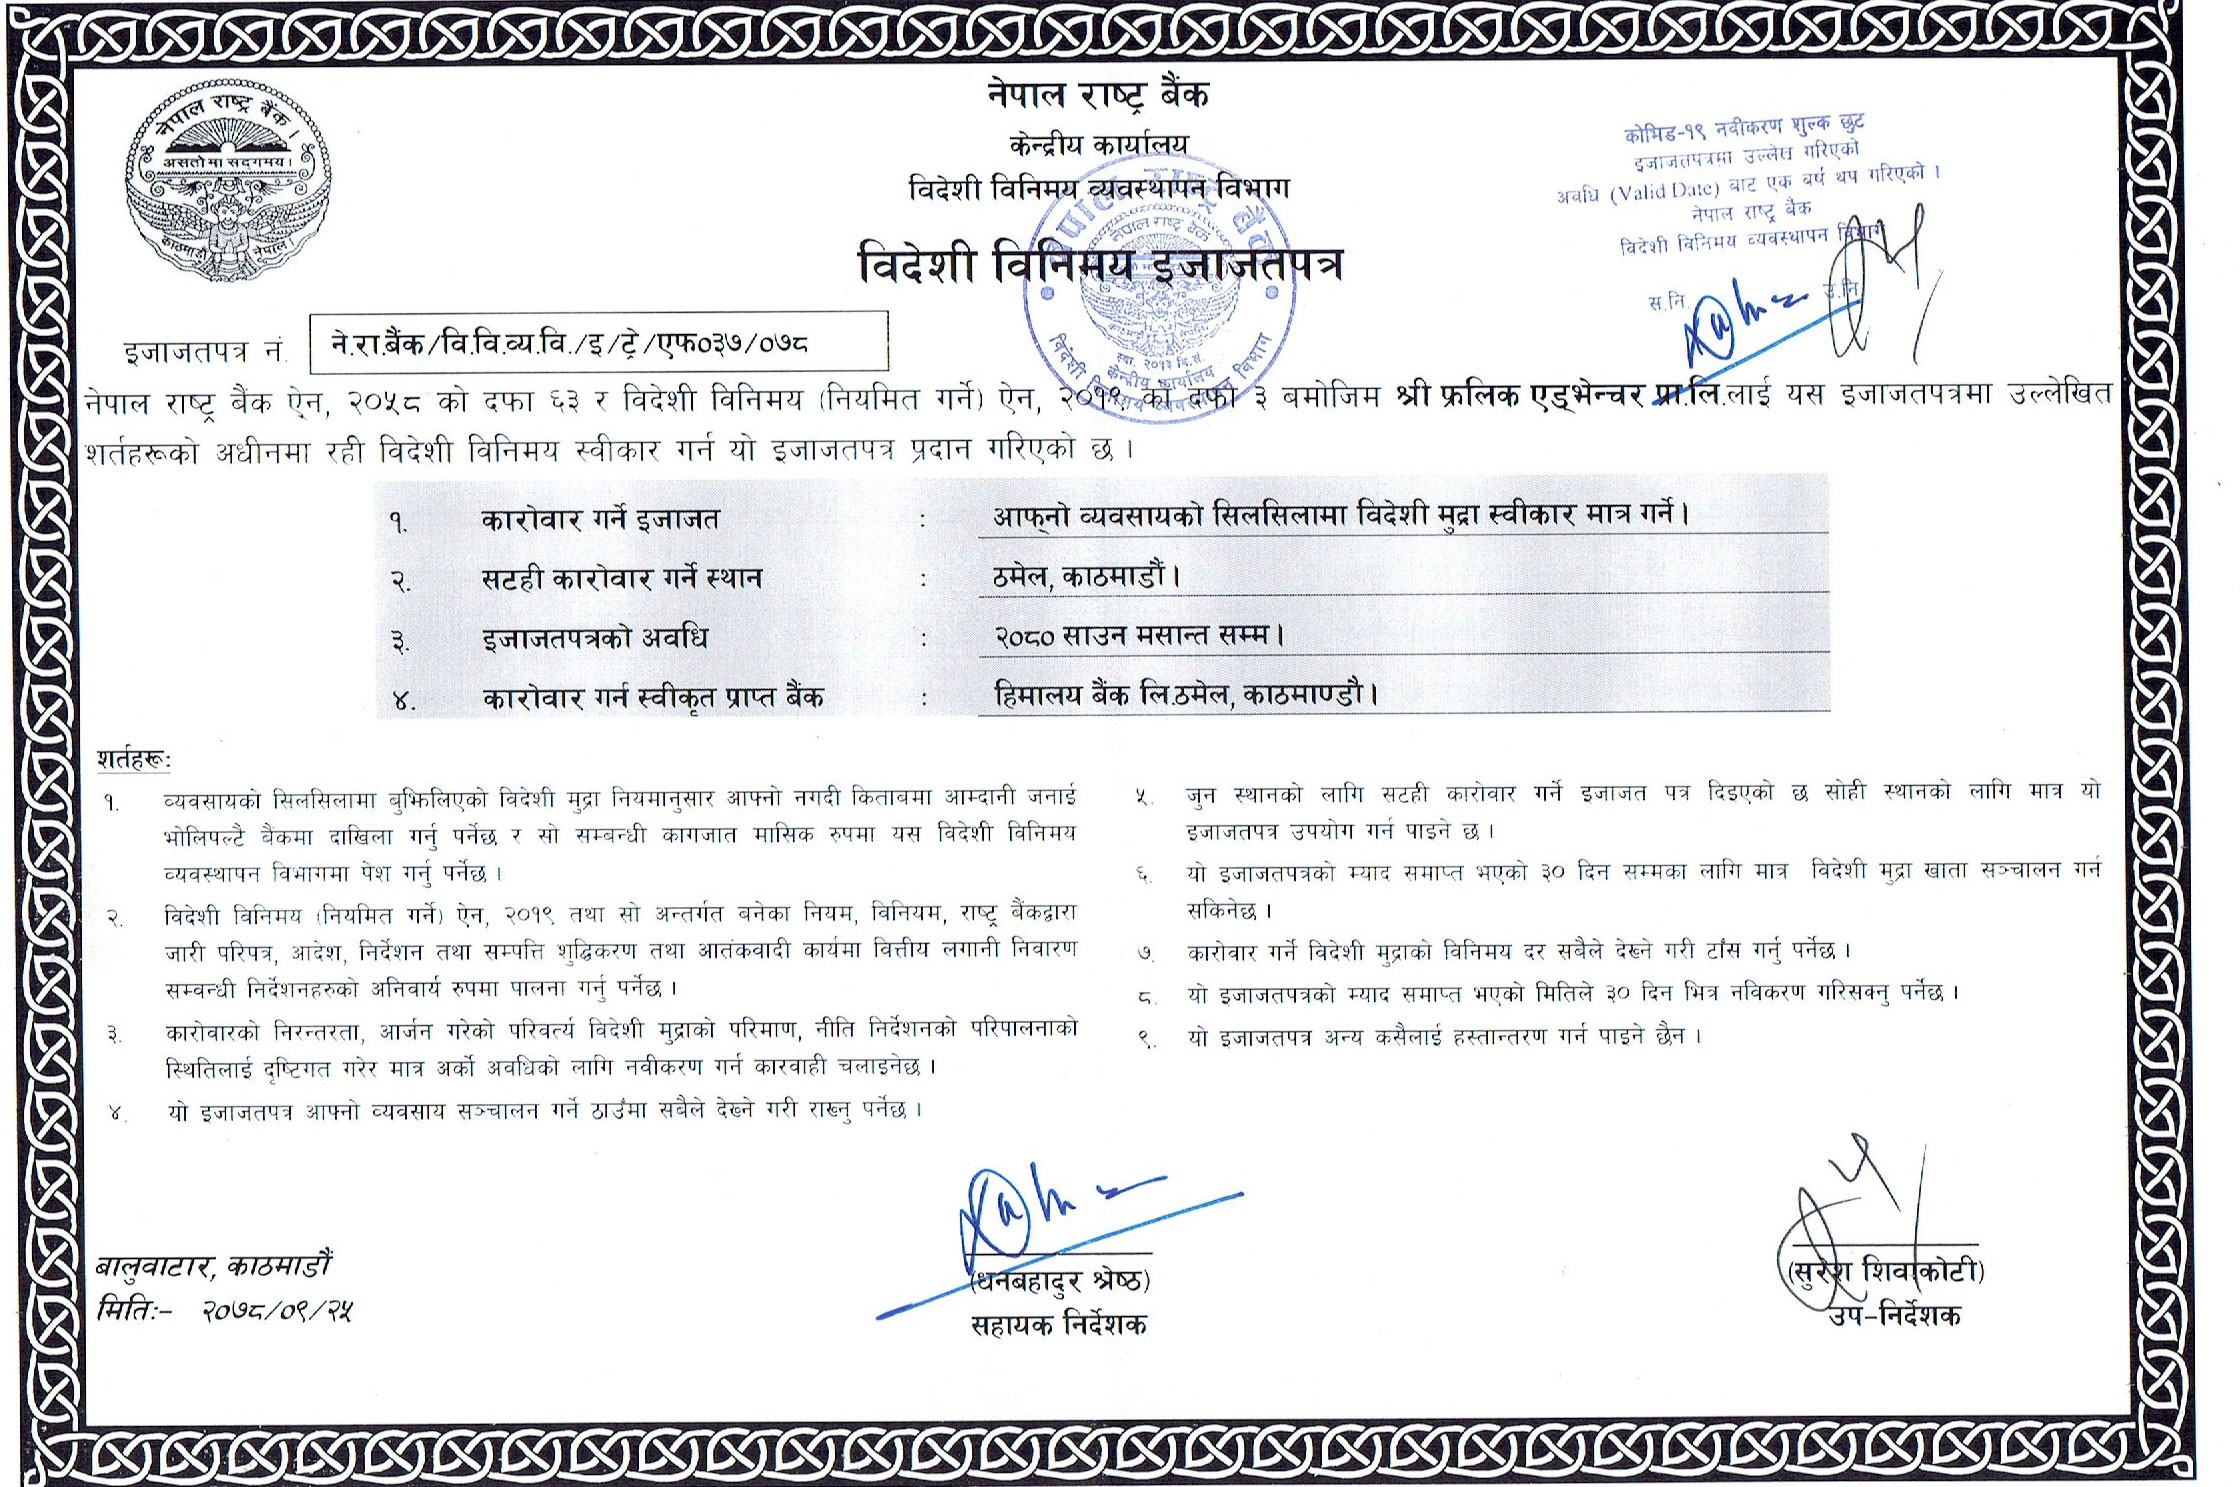 नेपाल राष्ट्र बैंक ।
असतोमा सदगमय।
काठमाडौं नेपाल।
नेपाल राष्ट्र बैंक
केन्द्रीय कार्यालय
विदेशी विनिमय व्यवस्थापन विभाग
विदेशी विनिमय इजाजतपत्र
नेपाल राष्ट्र बैंक
नेपाल राष्ट्र बैंक
स्था. २०१३ वि.सं.
केन्द्रीय कार्यालय
विदेशी विनिमय व्यवस्थापन विभाग
कोभिड-१९ नवीकरण शुल्क छुट
इजाजतपत्रमा उल्लेख गरिएको
अवधि (Valid Date) बाट एक बर्ष थप गरिएको ।
नेपाल राष्ट्र बैंक
विदेशी विनिमय व्यवस्थापन विभाग
स.नि. उ.नि.
इजाजतपत्र नं. ने.रा.बैंक/वि.वि.व्य.वि./इ/ट्रे/एफ०३७/०७८
नेपाल राष्ट्र बैंक ऐन, २०५८ को दफा ६३ र विदेशी विनिमय (नियमित गर्ने) ऐन, २०१९ को दफा ३ बमोजिम श्री फ्रलिक एड्भेन्चर प्रा.लि.लाई यस इजाजतपत्रमा उल्लेखित
शर्तहरूको अधीनमा रही विदेशी विनिमय स्वीकार गर्न यो इजाजतपत्र प्रदान गरिएको छ ।
१. कारोवार गर्ने इजाजत : आफ्नो व्यवसायको सिलसिलामा विदेशी मुद्रा स्वीकार मात्र गर्ने।
२. सटही कारोवार गर्ने स्थान : ठमेल, काठमाडौं।
३. इजाजतपत्रको अवधि : २०८० साउन मसान्त सम्म।
४. कारोवार गर्न स्वीकृत प्राप्त बैंक : हिमालय बैंक लि.ठमेल, काठमाण्डौ।
शर्तहरू:
१. व्यवसायको सिलसिलामा बुझिलिएको विदेशी मुद्रा नियमानुसार आफ्नो नगदी किताबमा आम्दानी जनाई
भोलिपल्टै बैंकमा दाखिला गर्नु पर्नेछ र सो सम्बन्धी कागजात मासिक रुपमा यस विदेशी विनिमय
व्यवस्थापन विभागमा पेश गर्नु पर्नेछ ।
२. विदेशी विनिमय (नियमित गर्ने) ऐन, २०१९ तथा सो अन्तर्गत बनेका नियम, विनियम, राष्ट्र बैंकद्वारा
जारी परिपत्र, आदेश, निर्देशन तथा सम्पत्ति शुद्धिकरण तथा आतंकवादी कार्यमा वित्तीय लगानी निवारण
सम्वन्धी निर्देशनहरुको अनिवार्य रुपमा पालना गर्नु पर्नेछ ।
३. कारोवारको निरन्तरता, आर्जन गरेको परिवर्त्य विदेशी मुद्राको परिमाण, नीति निर्देशनको परिपालनाको
स्थितिलाई दृष्टिगत गरेर मात्र अर्को अवधिको लागि नवीकरण गर्न कारवाही चलाइनेछ ।
४. यो इजाजतपत्र आफ्नो व्यवसाय सञ्चालन गर्ने ठाउँमा सबैले देख्ने गरी राख्नु पर्नेछ ।
५. जुन स्थानको लागि सटही कारोवार गर्ने इजाजत पत्र दिइएको छ सोही स्थानको लागि मात्र यो
इजाजतपत्र उपयोग गर्न पाइने छ ।
६. यो इजाजतपत्रको म्याद समाप्त भएको ३० दिन सम्मका लागि मात्र विदेशी मुद्रा खाता सञ्चालन गर्न
सकिनेछ ।
७. कारोवार गर्ने विदेशी मुद्राको विनिमय दर सबैले देख्ने गरी टाँस गर्नु पर्नेछ ।
८. यो इजाजतपत्रको म्याद समाप्त भएको मितिले ३० दिन भित्र नविकरण गरिसक्नु पर्नेछ ।
९. यो इजाजतपत्र अन्य कसैलाई हस्तान्तरण गर्न पाइने छैन ।
बालुवाटार, काठमाडौं
मिति:- २०७८/०९/२५
(धनबहादुर श्रेष्ठ)
सहायक निर्देशक
(सुरेश शिवाकोटी)
उप-निर्देशक